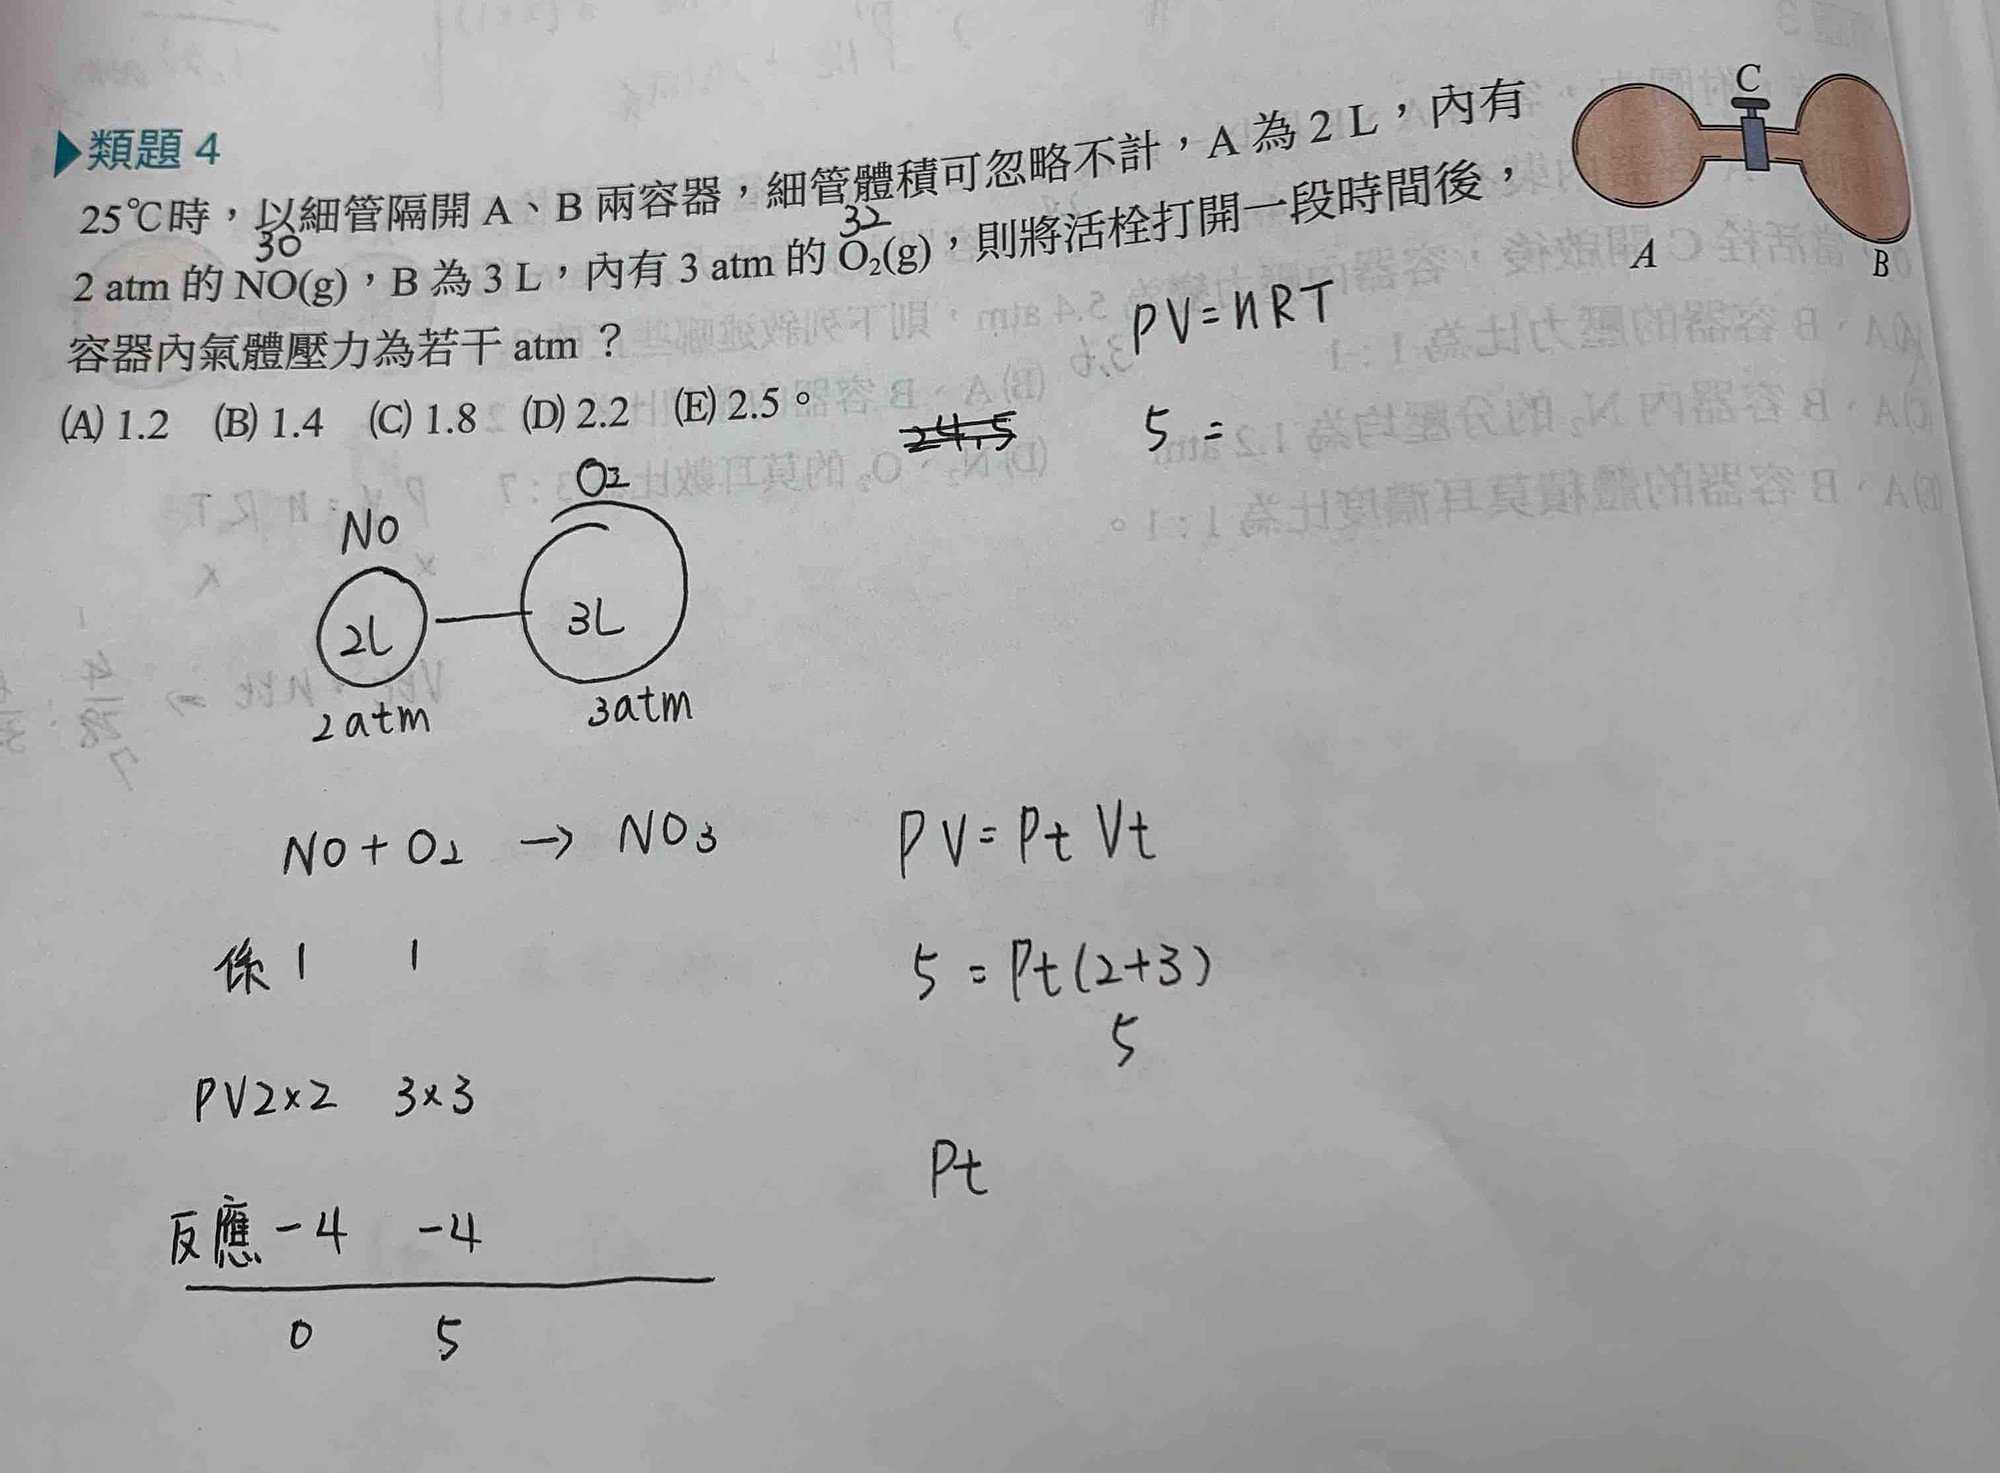 ▶類題 4
25℃時，以細管隔開 A、B 兩容器，細管體積可忽略不計，A 為 2 L，內有
30
32
2 atm 的 NO(g)，B 為 3 L，內有 3 atm 的 O₂(g)，則將活栓打開一段時間後，
容器內氣體壓力為若干 atm ？
(A) 1.2 (B) 1.4 (C) 1.8 (D) 2.2 (E) 2.5。
C
A
B
PV=nRT
24.5
5 =
NO
O2
2L
3L
2atm
3atm
NO + O2 → NO3
係 1 1
PV 2×2 3×3
反應 -4 -4
0 5
PV = Pt Vt
5 = Pt (2+3)
5
Pt